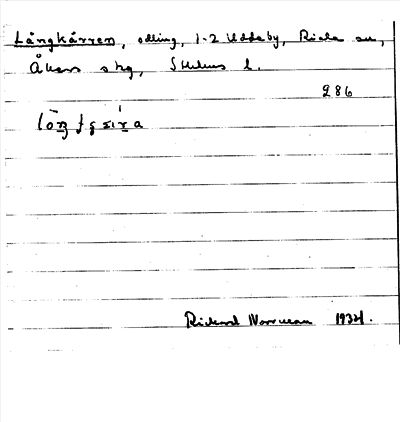 Långkärren, odling, 1-2 Uddeby, Riala sn,
Åkers skg, Sthlms l.
286
Rickard Norrman 1934.